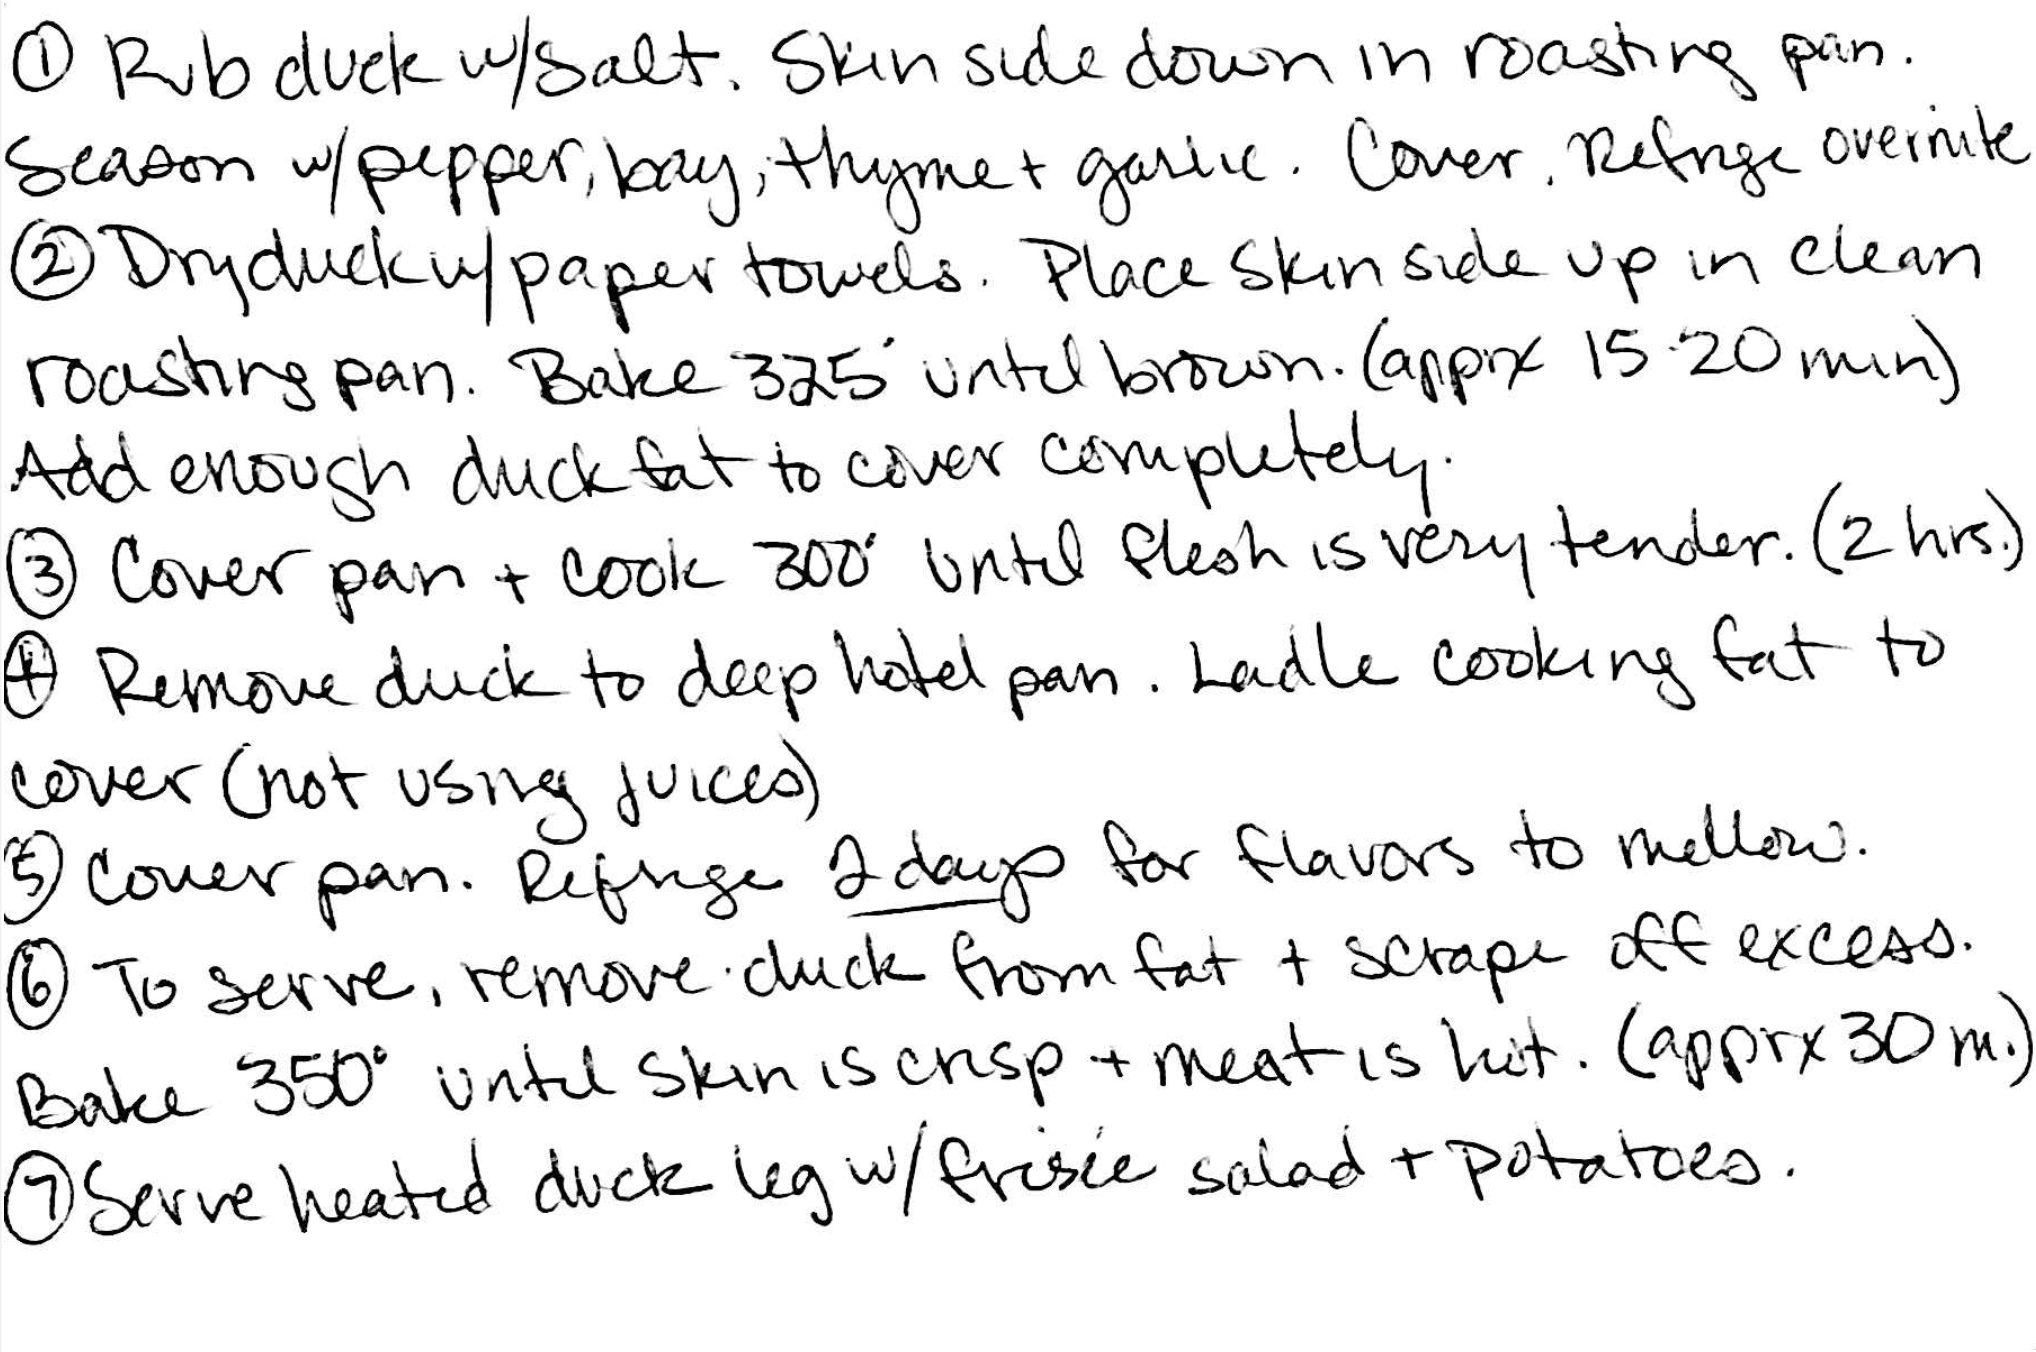 ① Rub duck w/salt. Skin side down in roasting pan.
Season w/pepper, bay, thyme + garlic. Cover. Refrige overnite
② Dry duck w/paper towels. Place skin side up in clean
roasting pan. Bake 325° until brown. (apprx 15-20 min)
Add enough duck fat to cover completely.
③ Cover pan + cook 300° until flesh is very tender. (2 hrs.)
④ Remove duck to deep hotel pan. Ladle cooking fat to
cover (not using juices)
⑤ Cover pan. Refrige 2 days for flavors to mellow.
⑥ To serve, remove duck from fat + scrape off excess.
Bake 350° until skin is crisp + meat is hot. (apprx 30 m.)
⑦ Serve heated duck leg w/ frisée salad + potatoes.